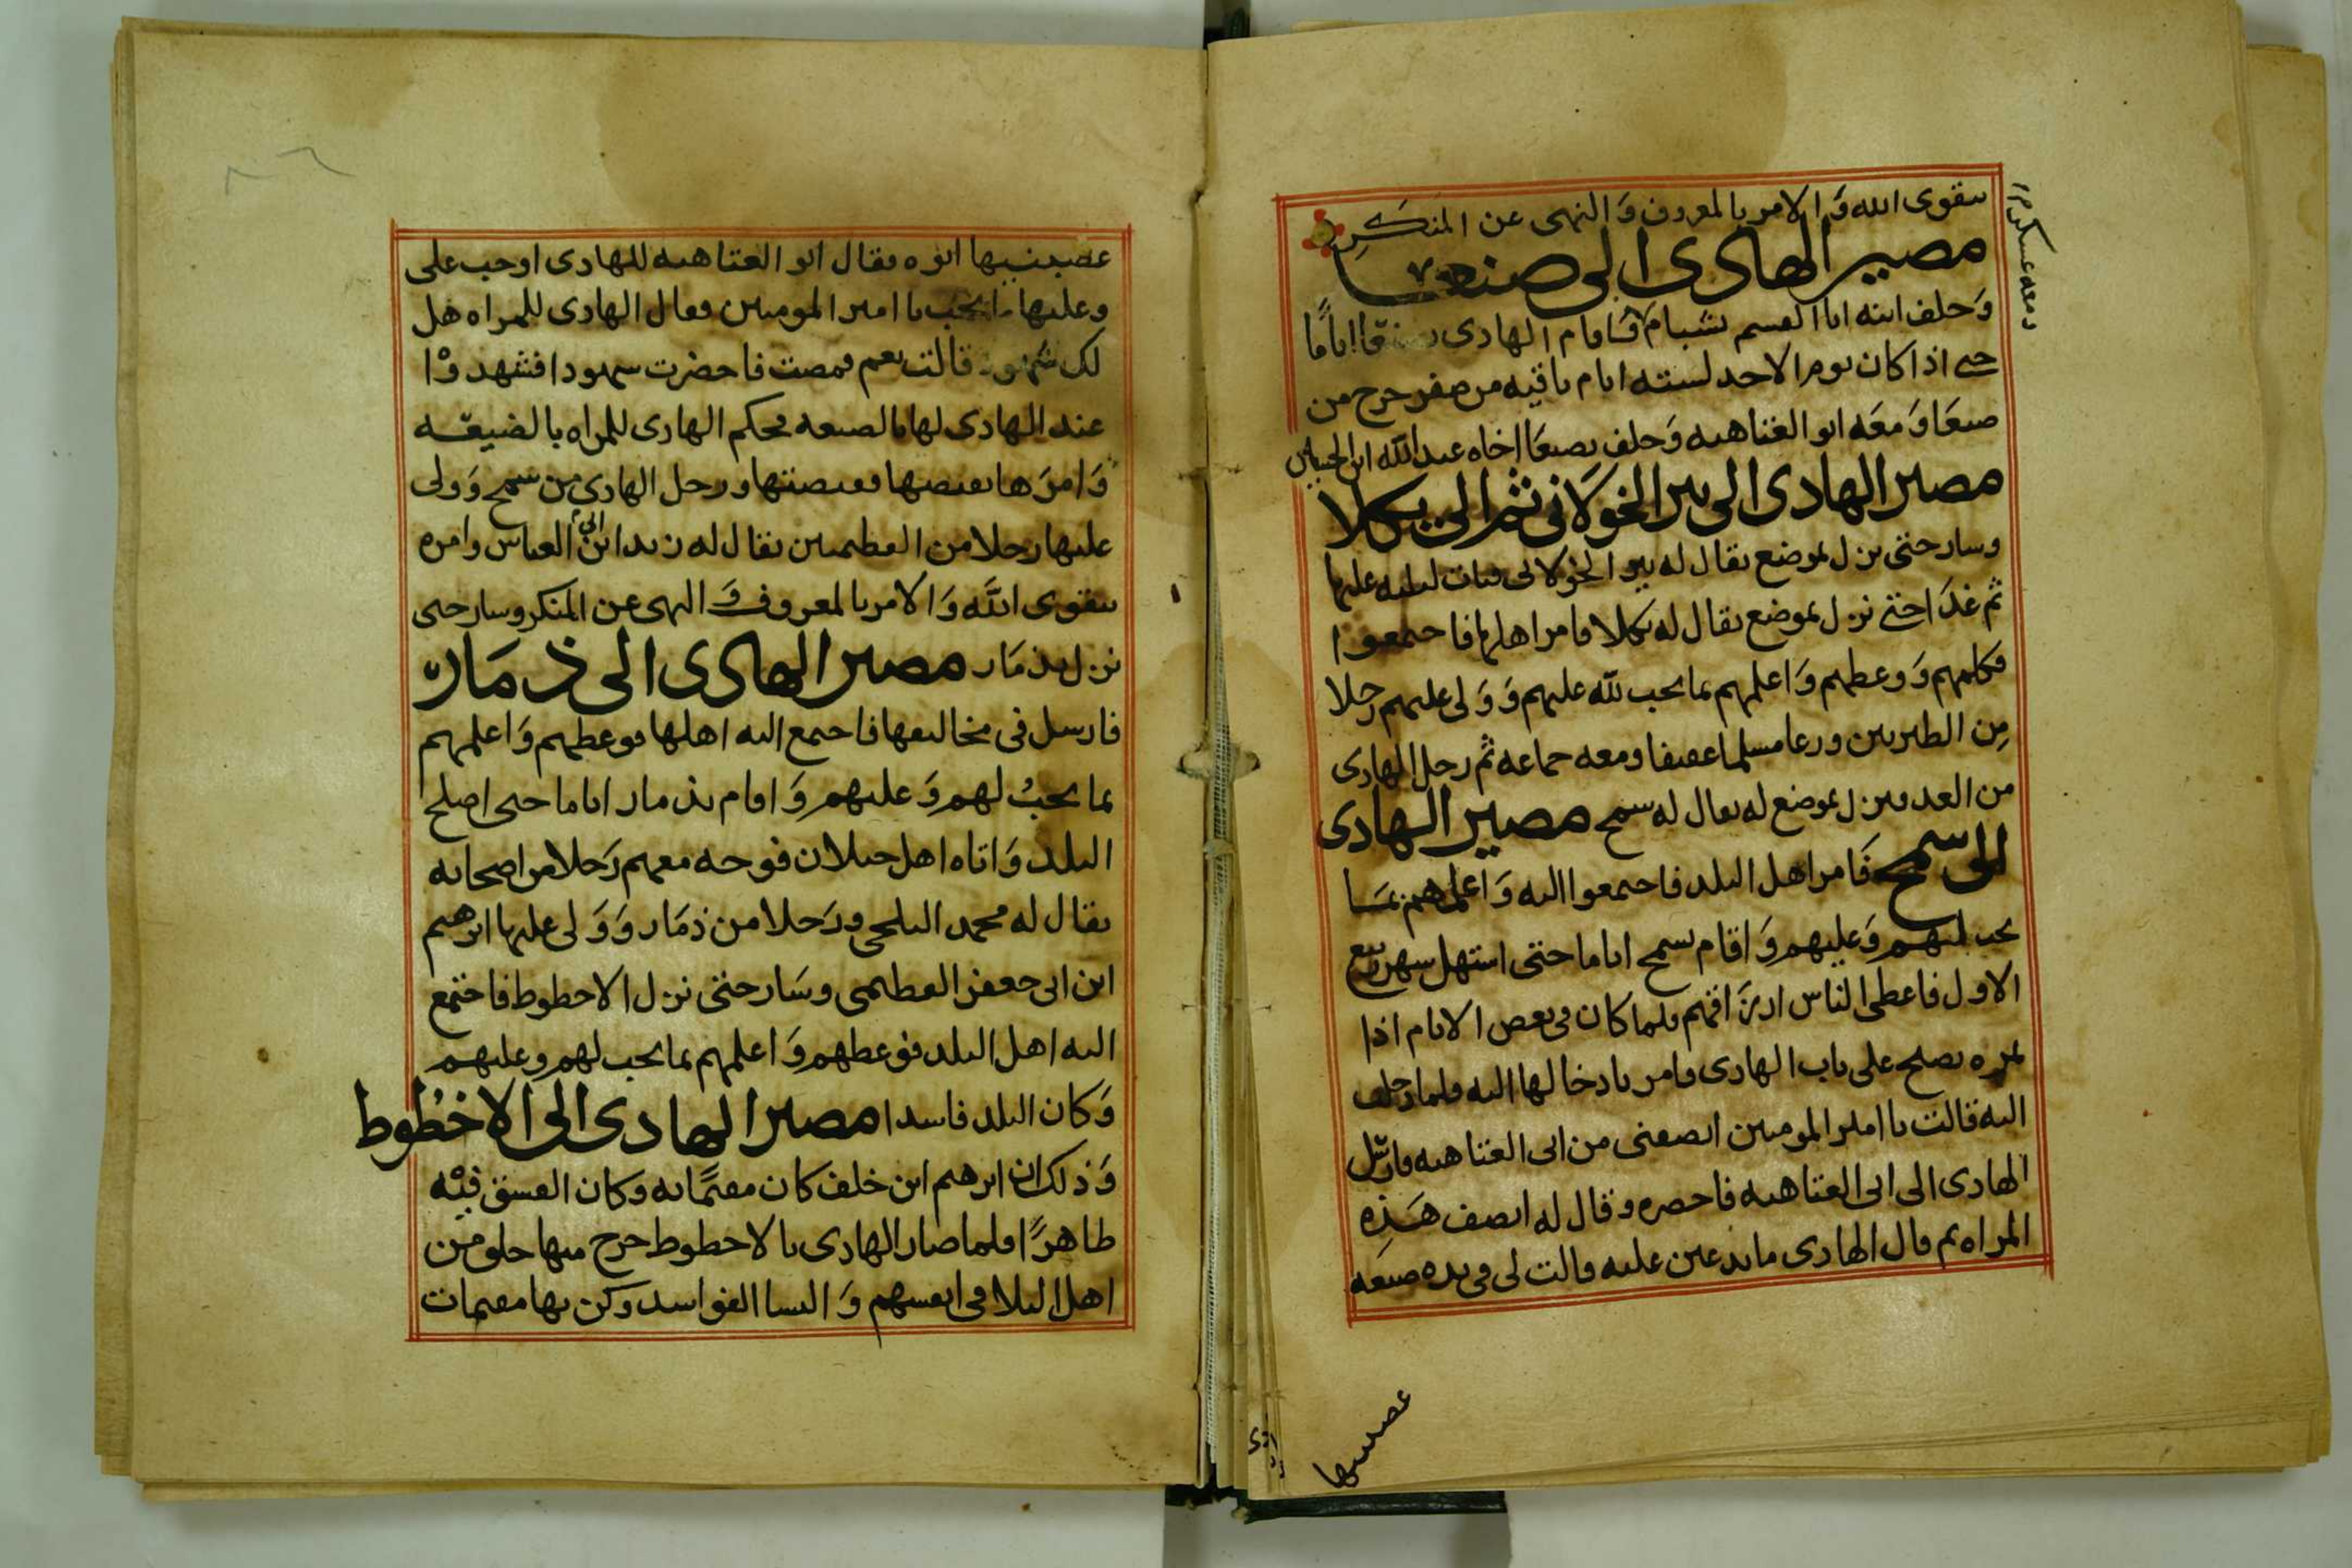 بتقوى الله وَالامر بالمعروف وَالنهى عن المنكرِ
مصير الهادى الى صنعا
وَخلف ابنه ابا القسم بشبام وَاقام الهادى بصنعا اياما
حتى اذا كان يوم الاحد لسته ايام باقيه من صفر خرج من
صنعَا وَمعَه ابو العتاهيه وَخلف بصنعَا اخاه عبد الله ابن الحسين
مصير الهادى الى بير الخوَلانى ثم الى يكلا
وسار حتى نزل بموضع يقال له بير الخولانى فبات ليلته عليها
ثم غدَا حتى نزل بموضع يقال له يكلا فامر اهلها فاجتمعوا
فكلمهم وَوعظهم وَاعلمهم بما يجب لله عليهم وَوَلى عليهم رجلا
مِن الطبريين ورعا مسلما عفيفا ومعه جماعه ثم رحل الهادى
من الغد فنزل بموضع له يقال له سمح مصير الهادى
الى سمح فَامر اهل البلد فاجتمعوا اليه وَاعلمهم بمَا
يجب لهم وَعليهم وَاقام بسمح اياما حتى استهل شهر ربيع
الاول فاعطى الناس ارزَاقهم فلما كان فى بعض الايام اذا
بمره تصلح على باب الهادى فامر بادخالها اليه فلما دخلت
اليه قالت يا امير المومنين انصفنى من ابى العتاهيه فارسل
الهادى الى ابى العتاهيه فاحضره وقال له انصف هَذِه
المراه ثم قال الهادى ما تدعين عليه قالت لى فى يده ضيعه
ومعه عسكره
عصبنيها
عصبنيها ابوه فقال ابو العتاهيه للهادى اوجب على
وعليها ما يجب يا امير المومنين فقال الهادى للمراه هل
لك شهود قالت نعم فمضت فاحضرت شهودا فشهدوا
عند الهادى لها بالضيعه فحكم الهادى للمراه بالضيعَه
وَامرَها بقبضها فقبضتها ورحل الهادى من سمح وَولى
عليها رجلا من الفطيميين يقال له زيد ابن ابى العباس وامره
بتقوى الله وَالامر بالمعروف وَالنهى عن المنكر وسار حتى
نزل بذمَار مصير الهادى الى ذمَار
فارسل فى مخاليفها فاجتمع اليه اهلها فوعظهم وَاعلمهم
بما يجبُ لهم وَعليهم وَاقام بذمار اياما حتى اصلح
البلد وَاتاه اهل جبلان فوجه معهم رَجلا من اصحابه
يقال له محمد البلخى ورَجلا من ذمَار وَوَلى عليها ابرهيم
ابن ابى جعفر الفطيمى وسَار حتى نزل الاخطوط فاجتمع
اليه اهل البلد فوعظهم وَاعلمهم بما يجب لهم وعليهم
وَكان البلد فاسدا مصير الهادى الى الاخطوط
وَذلك ان ابرهيم ابن خلف كان مقيمًا به وكان الفسق فيْه
ظاهرًا فلما صار الهادى بالاخطوط خرج منها خلق مِن
اهل البلا فى انفسهم وَالنسا الفواسد وكن بها مقيمات